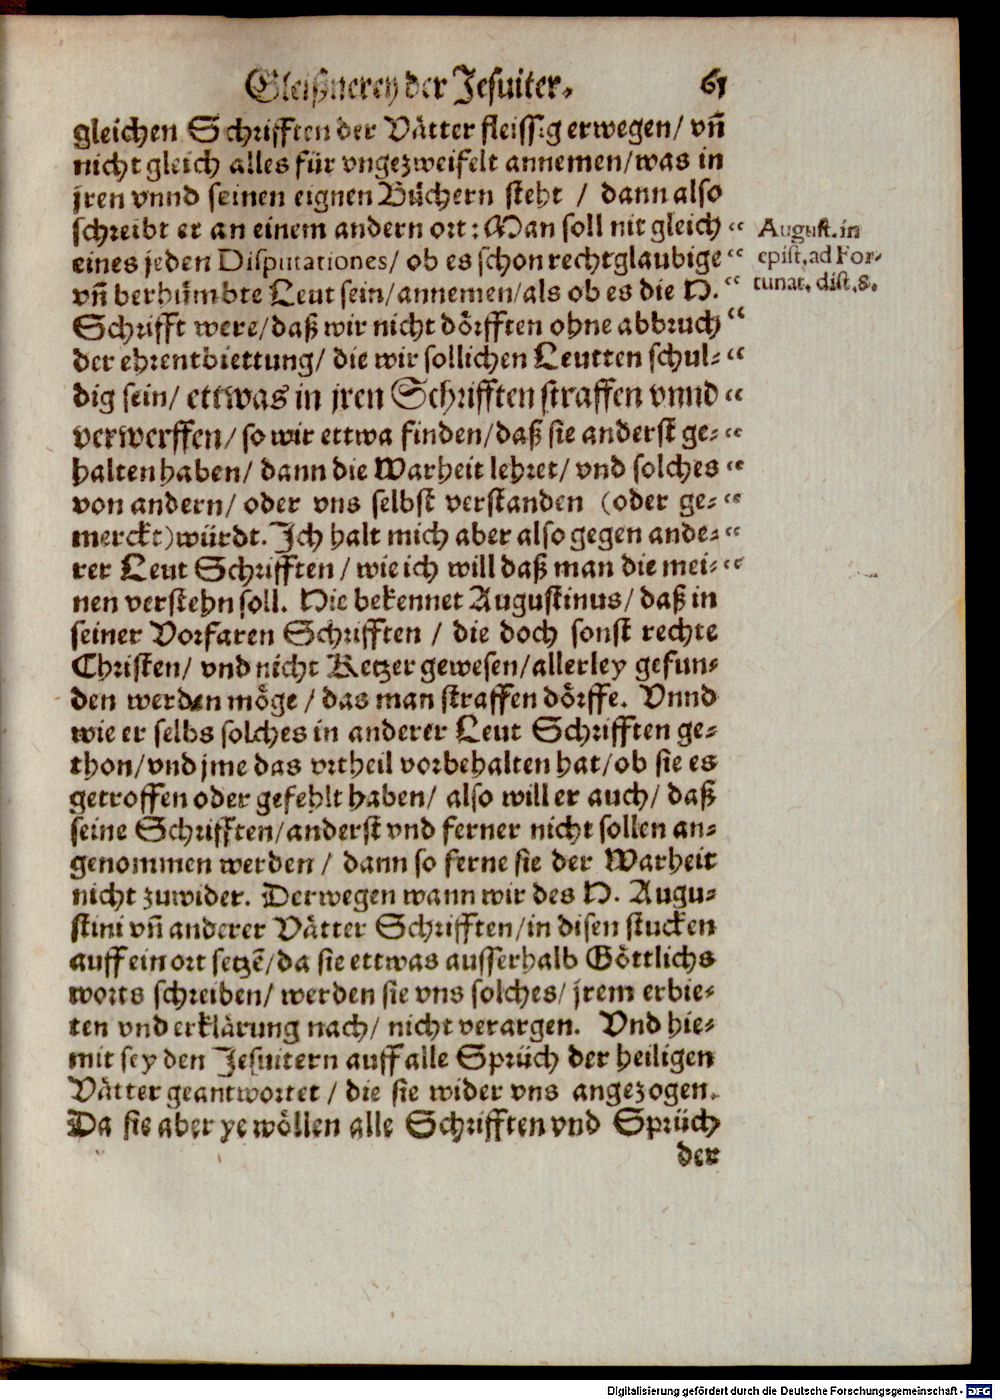 Gleißnerey der Jesuiter. 61
gleichen Schrifften der Vätter fleissig erwegen/ vñ
nicht gleich alles für vngezweifelt annemen/ was in
jren vnnd seinen eignen Büchern steht / dann also
schreibt er an einem andern ort: Man soll nit gleich “
eines jeden Disputationes/ ob es schon rechtglaubige “
vñ berhümbte Leut sein/ annemen/ als ob es die H. “
Schrifft were/ daß wir nicht dörfften ohne abbruch “
der ehrentbiettung/ die wir sollichen Leutten schul- “
dig sein/ ettwas in jren Schrifften straffen vnnd “
verwerffen/ so wir ettwa finden/ daß sie anderst ge- “
halten haben/ dann die Warheit lehret/ vnd solches “
von andern/ oder vns selbst verstanden (oder ge- “
merckt) würdt. Ich halt mich aber also gegen ande- “
rer Leut Schrifften / wie ich will daß man die mei- “
nen verstehn soll. Hie bekennet Augustinus/ daß in
seiner Vorfaren Schrifften / die doch sonst rechte
Christen/ vnd nicht Ketzer gewesen/ allerley gefun-
den werden möge / das man straffen dörffe. Vnnd
wie er selbs solches in anderer Leut Schrifften ge-
thon/ vnd jme das vrtheil vorbehalten hat/ ob sie es
getroffen oder gefehlt haben/ also will er auch/ daß
seine Schrifften/ anderst vnd ferner nicht sollen an-
genommen werden / dann so ferne sie der Warheit
nicht zuwider. Derwegen wann wir des H. Augu-
stini vñ anderer Vätter Schrifften/ in disen stucken
auff ein ort setzē/ da sie ettwas ausserhalb Göttlichs
worts schreiben/ werden sie vns solches/ jrem erbie-
ten vnd erklärung nach/ nicht verargen. Vnd hie-
mit sey den Jesuitern auff alle Sprüch der heiligen
Vätter geantwortet / die sie wider vns angezogen.
Da sie aber ye wöllen alle Schrifften vnd Sprüch
der
August. in
epist. ad For-
tunat. dist. 8.
Digitalisierung gefördert durch die Deutsche Forschungsgemeinschaft - DFG